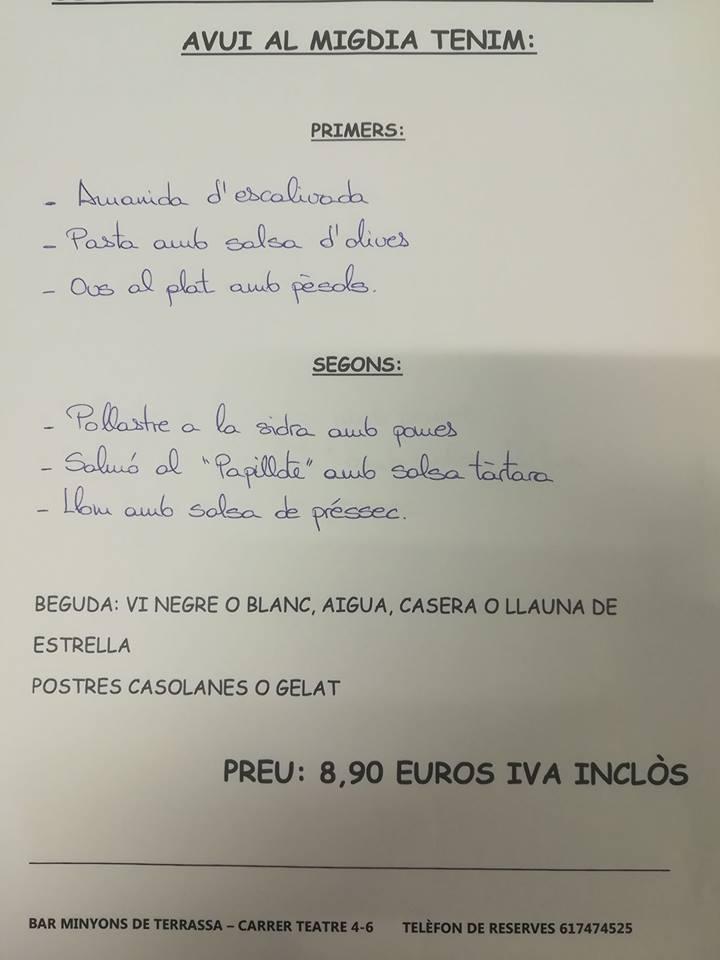 AVUI AL MIGDIA TENIM:
PRIMERS:
- Amanida d'escalivada
- Pasta amb salsa d'olives
- Ous al plat amb pèsols.
SEGONS:
- Pollastre a la sidra amb pomes
- Salmó al "Papillote" amb salsa tàrtara
- Llom amb salsa de préssec.
BEGUDA: VI NEGRE O BLANC, AIGUA, CASERA O LLAUNA DE
ESTRELLA
POSTRES CASOLANES O GELAT
PREU: 8,90 EUROS IVA INCLÒS
BAR MINYONS DE TERRASSA – CARRER TEATRE 4-6 TELÈFON DE RESERVES 617474525